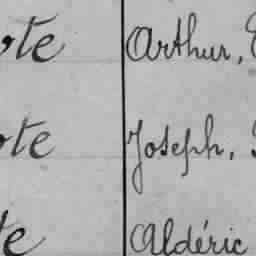 ote Arthur,
ote Joseph,
te Aldéric